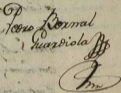 Pedro Bernal
Guardiola